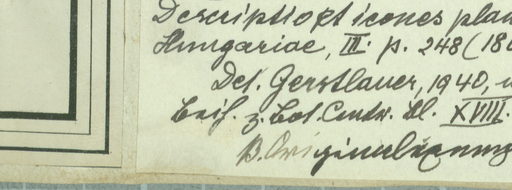 Descriptio et icones plan
Hungariae, III. p. 248 (180
Det. Gerstlauer, 1940,
Beih. z. Bot. Centr. Bl. XVIII.
B. Originalexempl